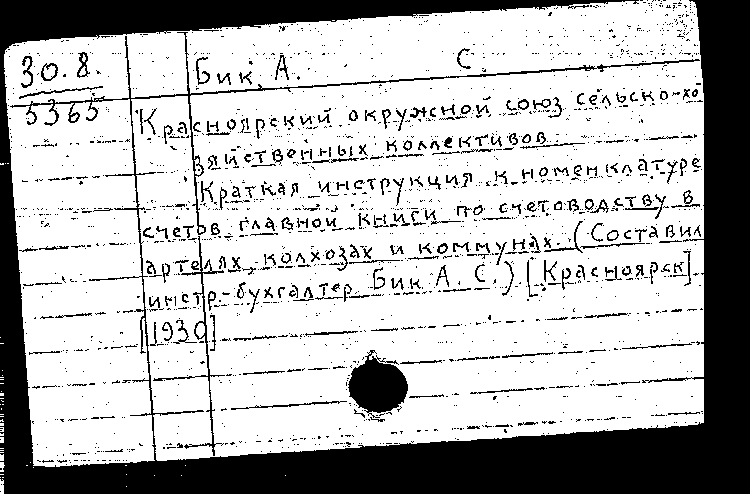 30.8.
5365
Бик. А. С.
Красноярский окружной союз сельско-хо
зяйственных коллективов.
Краткая инструкция к номенклатуре
счетов главной книги по счетоводству в
артелях, колхозах и коммунах. (Составил
инстр.-бухгалтер Бик А. С.) [Красноярск]
[1930]